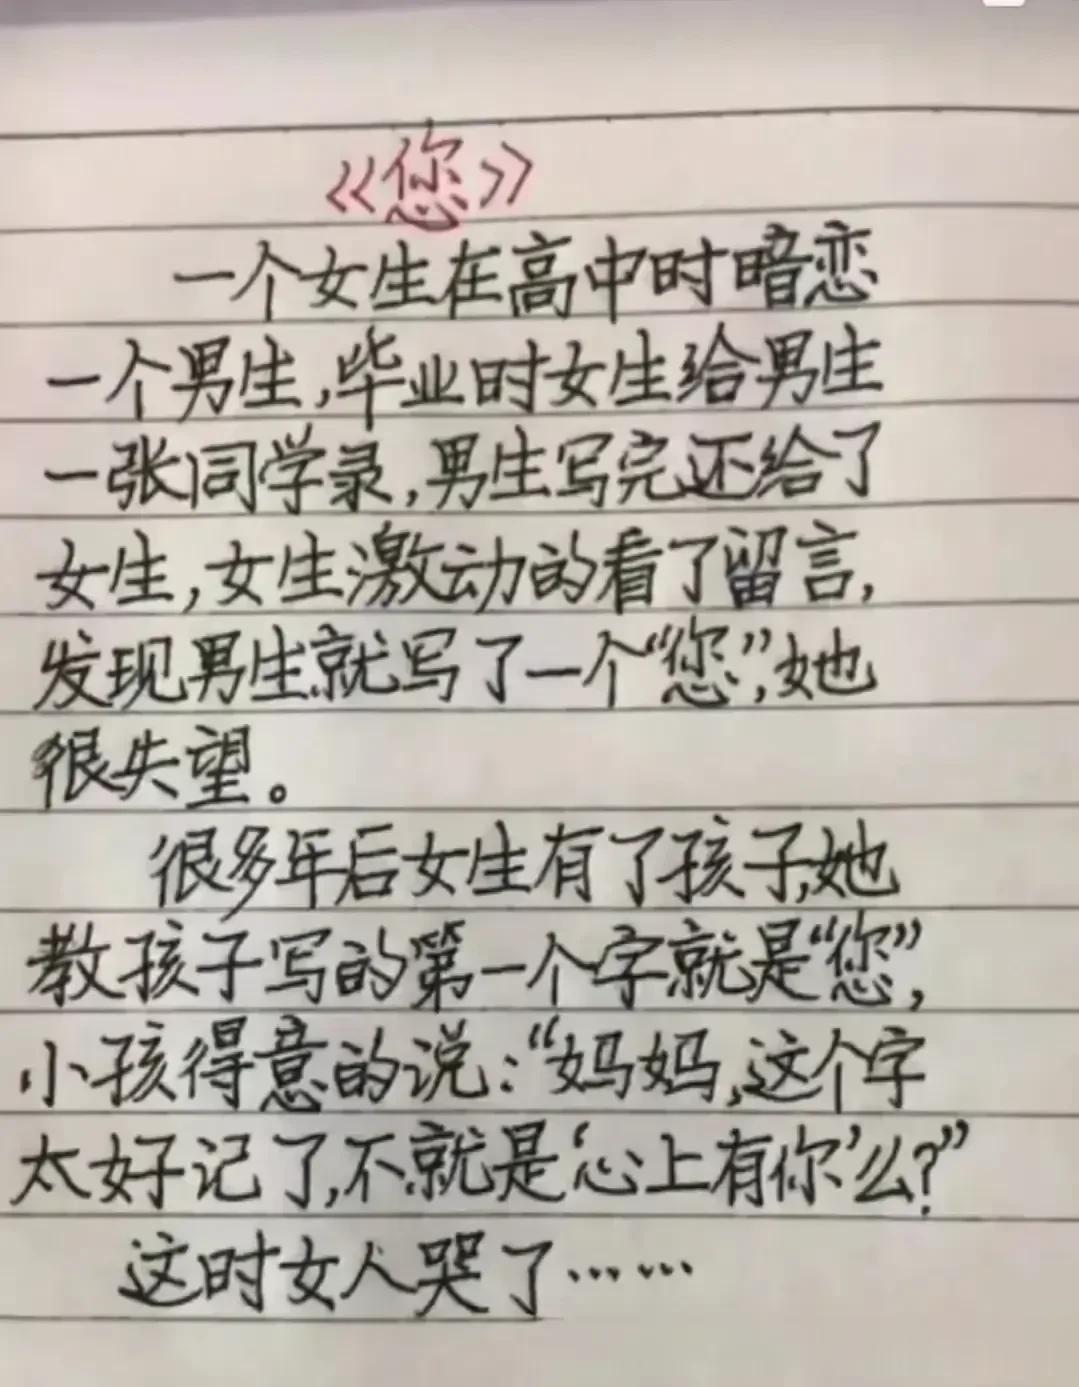 《您》
一个女生在高中时暗恋
一个男生,毕业时女生给男生
一张同学录,男生写完还给了
女生,女生激动的看了留言,
发现男生就写了一个“您”,她
很失望。
很多年后女生有了孩子,她
教孩子写的第一个字就是“您”,
小孩得意的说:“妈妈,这个字
太好记了,不就是‘心上有你’么?”
这时女人哭了……